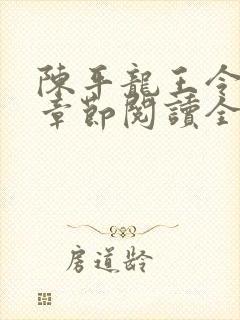 陳平龍王令
章節閱讀全
房道齡